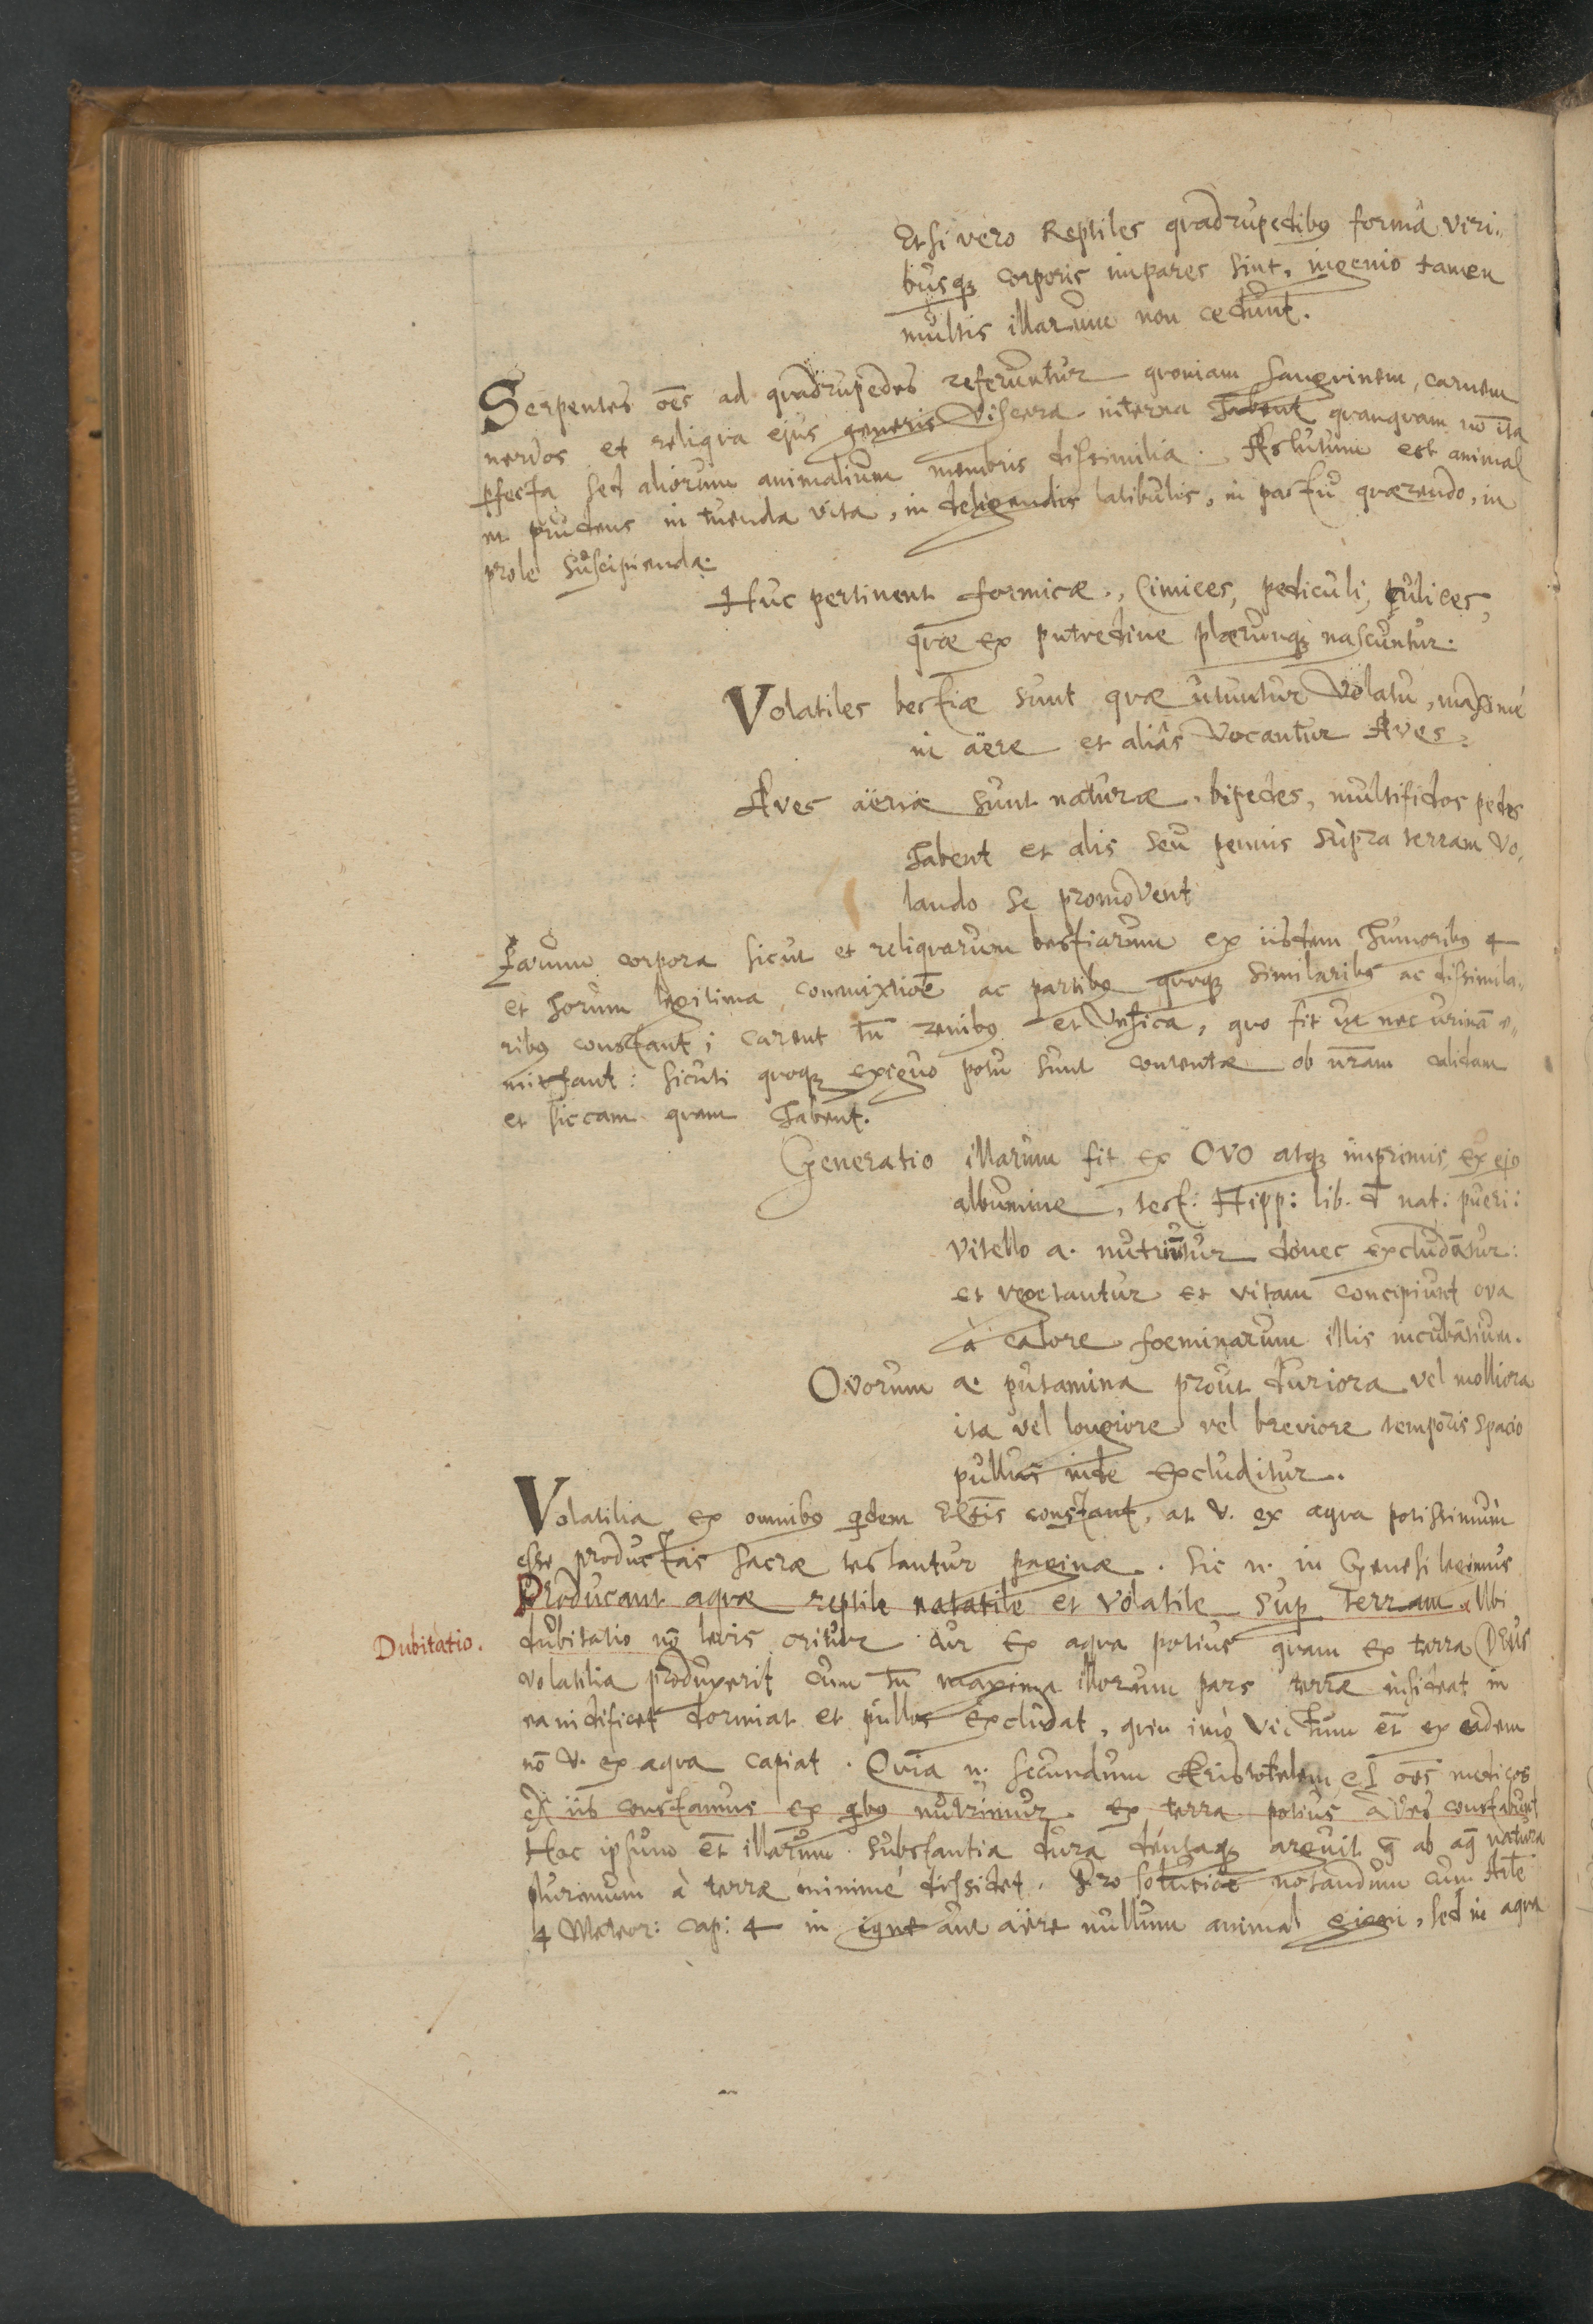 Etsi vero Reptiles qvadrupedibꝯ formâ viri„
busqꝫ corporis impares sint, ingenio tamen
multis illarum non cedunt.
Serpentes oēs ad qvadrupedes referuntur qvoniam sangvinem, carnem
nervos et reliqva ejus generis viscera interna habent qvanqvam nō ita
ꝑfecta sed aliorum animalium membris dissimilia. Astutum est animal
et prudens in tuenda vita, in deligendis latibulis, in pastu qværendo, in
prole suscipienda.
Huc pertinent formicæ, Cimices, pediculi, pulices,
qvæ ex putredine plærunqꝫ nascuntur.
Volatiles bestiæ sunt qvæ utuntur volatu, maximé
in aëre et aliâs vocantur Aves.
Aves aëriæ sunt naturæ, bipedes, multifidos pedes
habent et alis seu pennis supra terram vo„
lando se promovent
Earum corpora sicut et reliqvarum bestiarum ex iisdem humoribꝯ 4
et horum legitima commixtiōe ac partibꝯ qvoqꝫ similaribꝯ ac dissimila„
ribꝯ constant; carent tn̄ renibꝯ et vesica, qvo fit ut nec urinā e„
mittant: sicuti qvoqꝫ exiguo potu sunt contentæ ob nr̄am calidam
et siccam qvam habent.
Generatio illarum fit ex OVO atqꝫ imprimis ex ejꝯ
albumine, test: Hipp: lib. d̄ nat: pueri:
vitello a. nutriūtur donec excludātur:
et vegetantur et vitam concipiunt ova
à calore foeminarum illis incubātium.
Ovorum a. putamina prout duriora vel molliora
ita vel longiore vel breviore temporis spacio
pullus inde excluditur.
Volatilia ex omnibꝯ qͥdem Eltīs constant, at v. ex aqva potissimum
esse productas sacræ testantur paginæ. Sic n. in Genesi legimus
Producant aqvæ reptile natatile et volatile suꝑ terram. Ubi
Dubitatio.
dubitatio nō levis oritur cur ex aqva potius qvam ex terra Deus
volatilia produxerit cum tn̄ maxima illorum pars terræ insideat in
ea nidificet dormiat et pullos excludat, qvin imò victum et̄ ex eadem
nō v. ex aqva capiat. Qvia n. secundum Aristotelem et oēs medicos
Ex iis constamus ex qͥbꝯ nutrimur. ex terra potius aves constabunt
Hoc ipsum et̄ illarum substantia dura densaqꝫ arguit q̄ ab aq̄ natura
plurimum à terræ minimé dissidet. Pro solutiōe notandum cum Arīle
4 Meteor: cap: 4 in igne aut aëre nullum animal gigni, sed in aqva